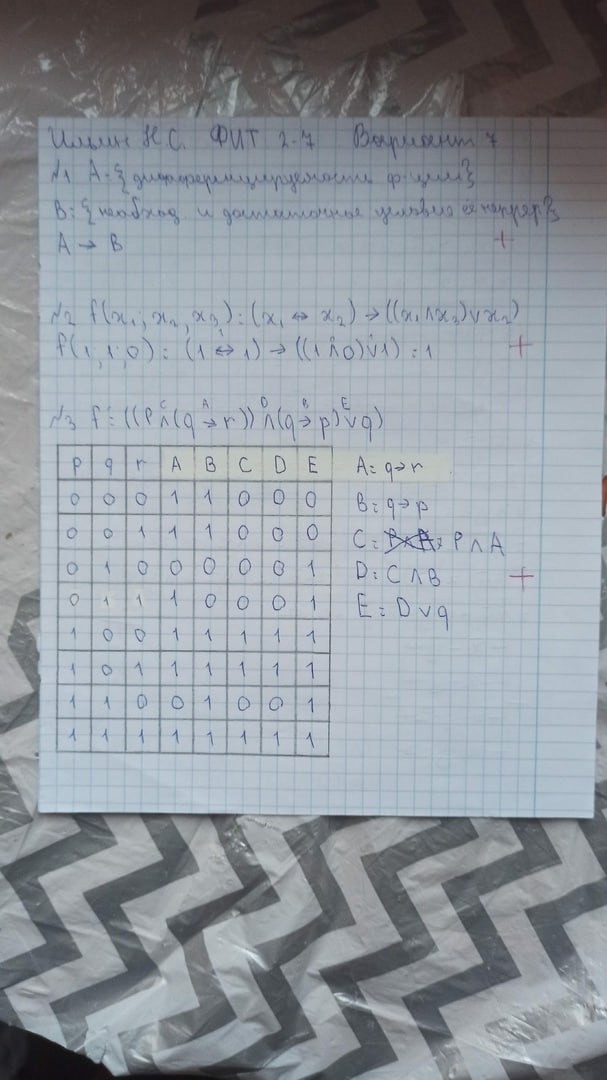 Ильин Н.С. ФИТ 2-7 Вариант 7
№1 A = {дифференцируемость ф-ции}
B = {необход и достаточное условие её непрер}
A → B +
№2 f(x₁; x₂, x₃) = (x₁ ↔ x₂) → ((x₁ ∧ x₃) ∨ x₂)
f(1; 1; 0) = (1 ↔ 1) → ((1 ∧ 0) ∨ 1) = 1 +
C A D B E
№3 f = ((p ∧ (q → r)) ∧ (q → p) ∨ q)
p q r A B C D E A = q → r
0 0 0 1 1 0 0 0 B = q → p
0 0 1 1 1 0 0 0 C = P ∧ A
0 1 0 0 0 0 0 1 D = C ∧ B +
0 1 1 1 0 0 0 1 E = D ∨ q
1 0 0 1 1 1 1 1
1 0 1 1 1 1 1 1
1 1 0 0 1 0 0 1
1 1 1 1 1 1 1 1